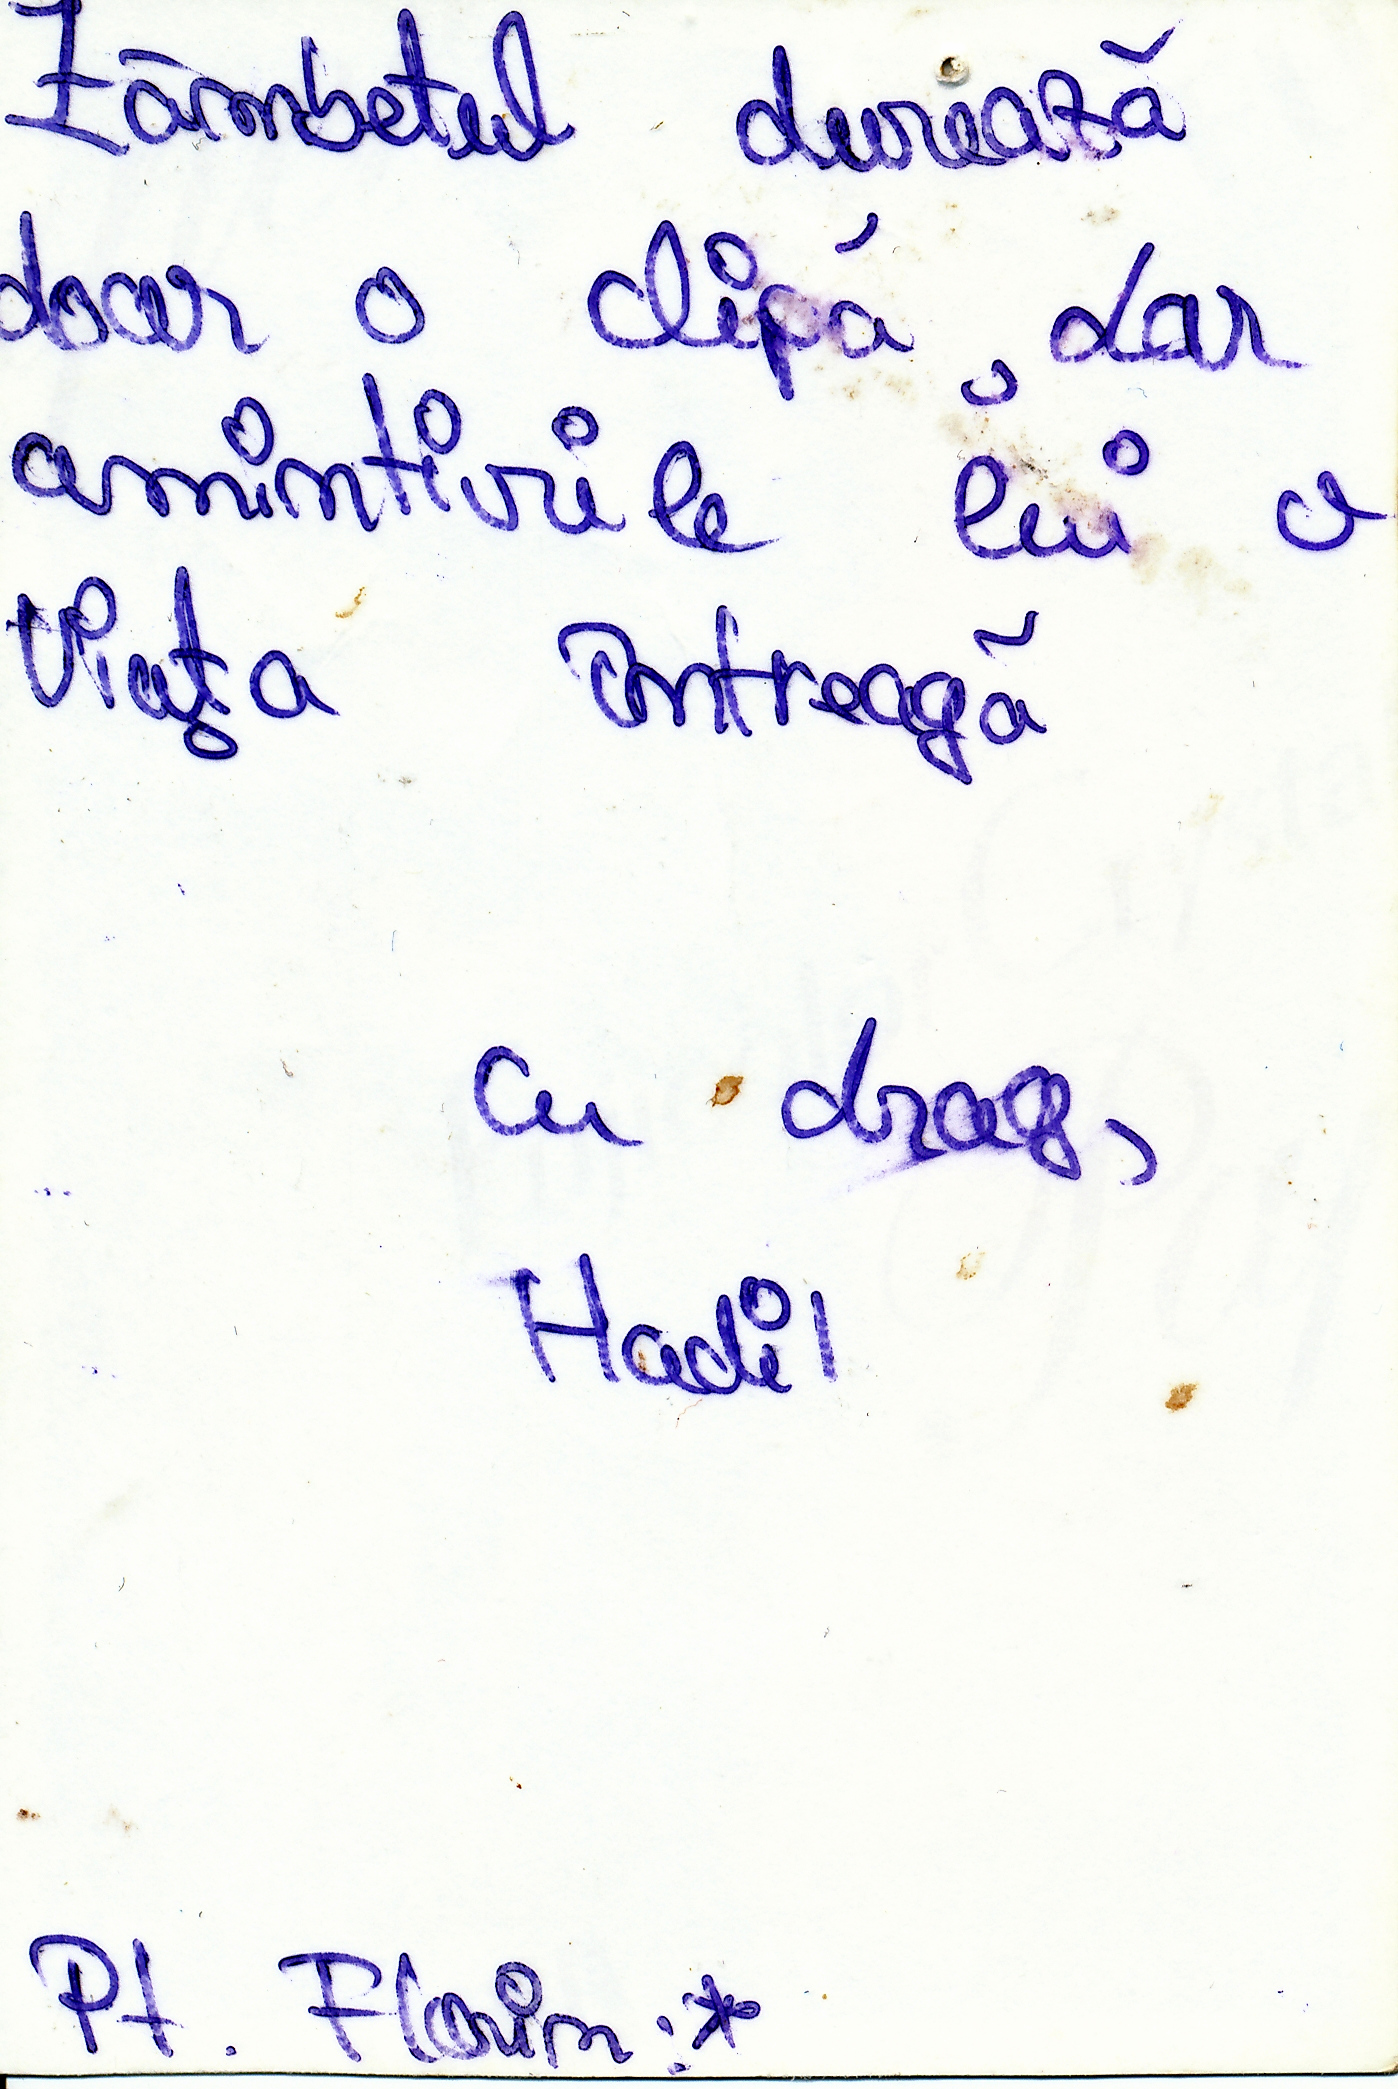 Zâmbetul durează
doar o clipă, dar
amintirile lui o
viața întreagă
Cu drag,
Hadil
Pt. Florin :*